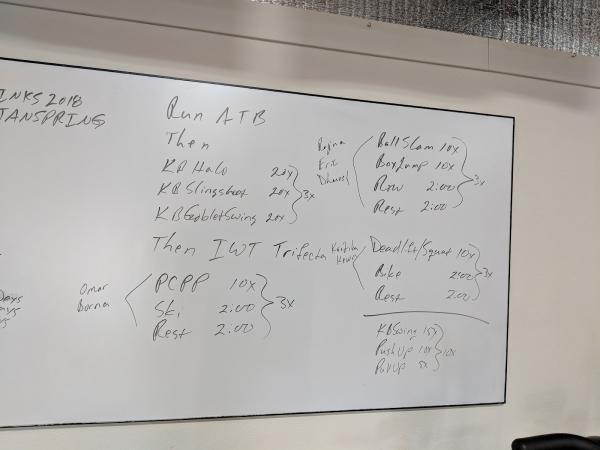 INKS 2018
TANSPRING
Run ATB
Then
KB Halo 20x
KB Slingshot 20x
KB Goblet Swing 20x
3x
Then IWT Trifecta
Omar
Borna
PCPP 10x
Ski 2:00
Rest 2:00
3x
Regina
Eric
Ball Slam 10x
Box Jump 10x
Row 2:00
Rest 2:00
3x
Deadlift/Squat 10x
Bike 2:00
Rest 2:00
3x
KB Swing 15x
Push Up 10x
Pull Up 5x
10x
Days